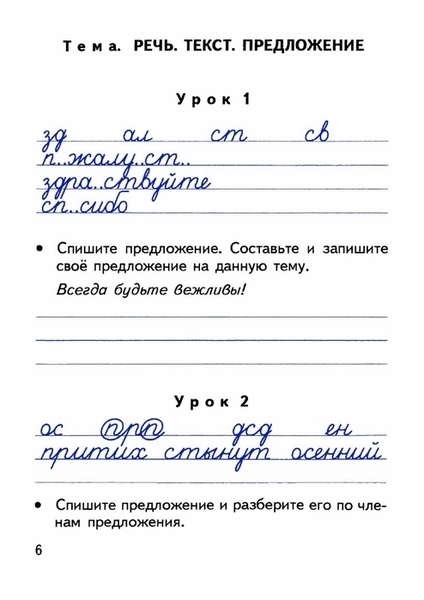 Тема. РЕЧЬ. ТЕКСТ. ПРЕДЛОЖЕНИЕ
Урок 1
зд ал ст св
п..жалу..ст..
здра..ствуйте
сп..сибо
• Спишите предложение. Составьте и запишите
своё предложение на данную тему.
Всегда будьте вежливы!
Урок 2
ос прп дсд ен
притих стынут осенний
• Спишите предложение и разберите его по чле-
нам предложения.
6